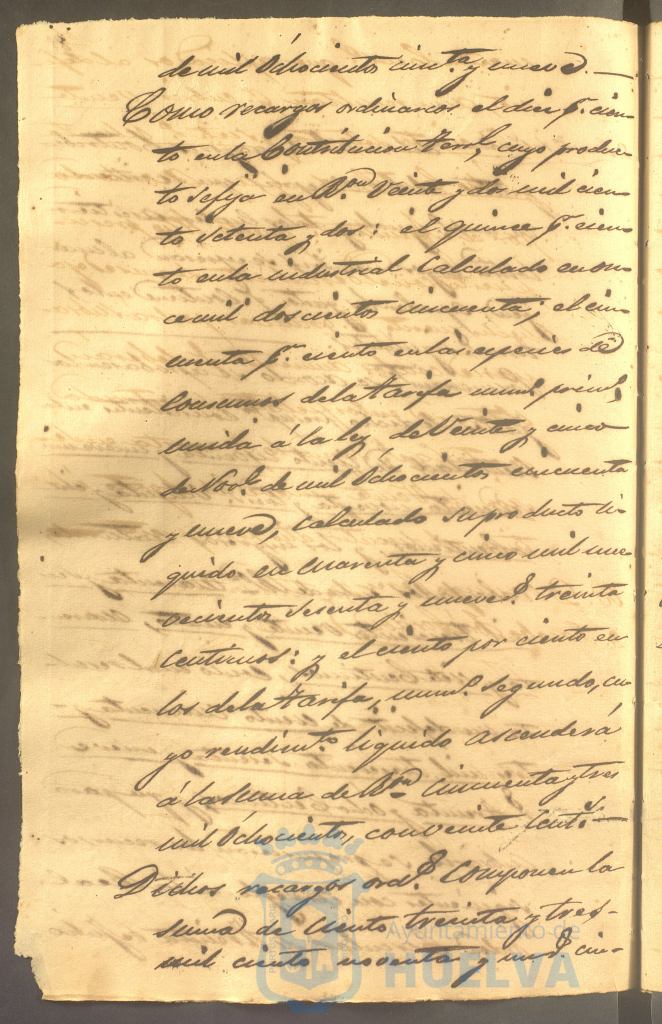 de mil Ochocientos cincta. y nueve.—
Como recargos ordinarios el diez pr. cien-
to en la Contribucion Terrl, cuyo produc-
to se fija en Ron. Veinte y dos mil cien-
to setenta y dos: el quince pr. cien-
to en la industrial Calculado en on-
ce mil doscientos cincuenta; el cin-
cuenta pr. ciento en las especies de
Consumos de la tarifa numo. primo.
unida á la ley de Veinte y cinco
de Nove. de mil Ochocientos cincuenta
y nueve, Calculado su producto li-
quido en Cuarenta y cinco mil nue-
vecientos Sesenta y nueve rs. treinta
Centimos: y el ciento por ciento en
los de la tarifa, numo. segundo, cu-
yo rendimto. liquido ascenderá
á la suma de Ron. Cincuenta y tres
mil Ochocientos, con veinte Cents.—
Dichos recargos ords. Componen la
suma de Ciento treinta y tres-
mil ciento noventa y un rs. cin-
Ayuntamiento de
HUELVA